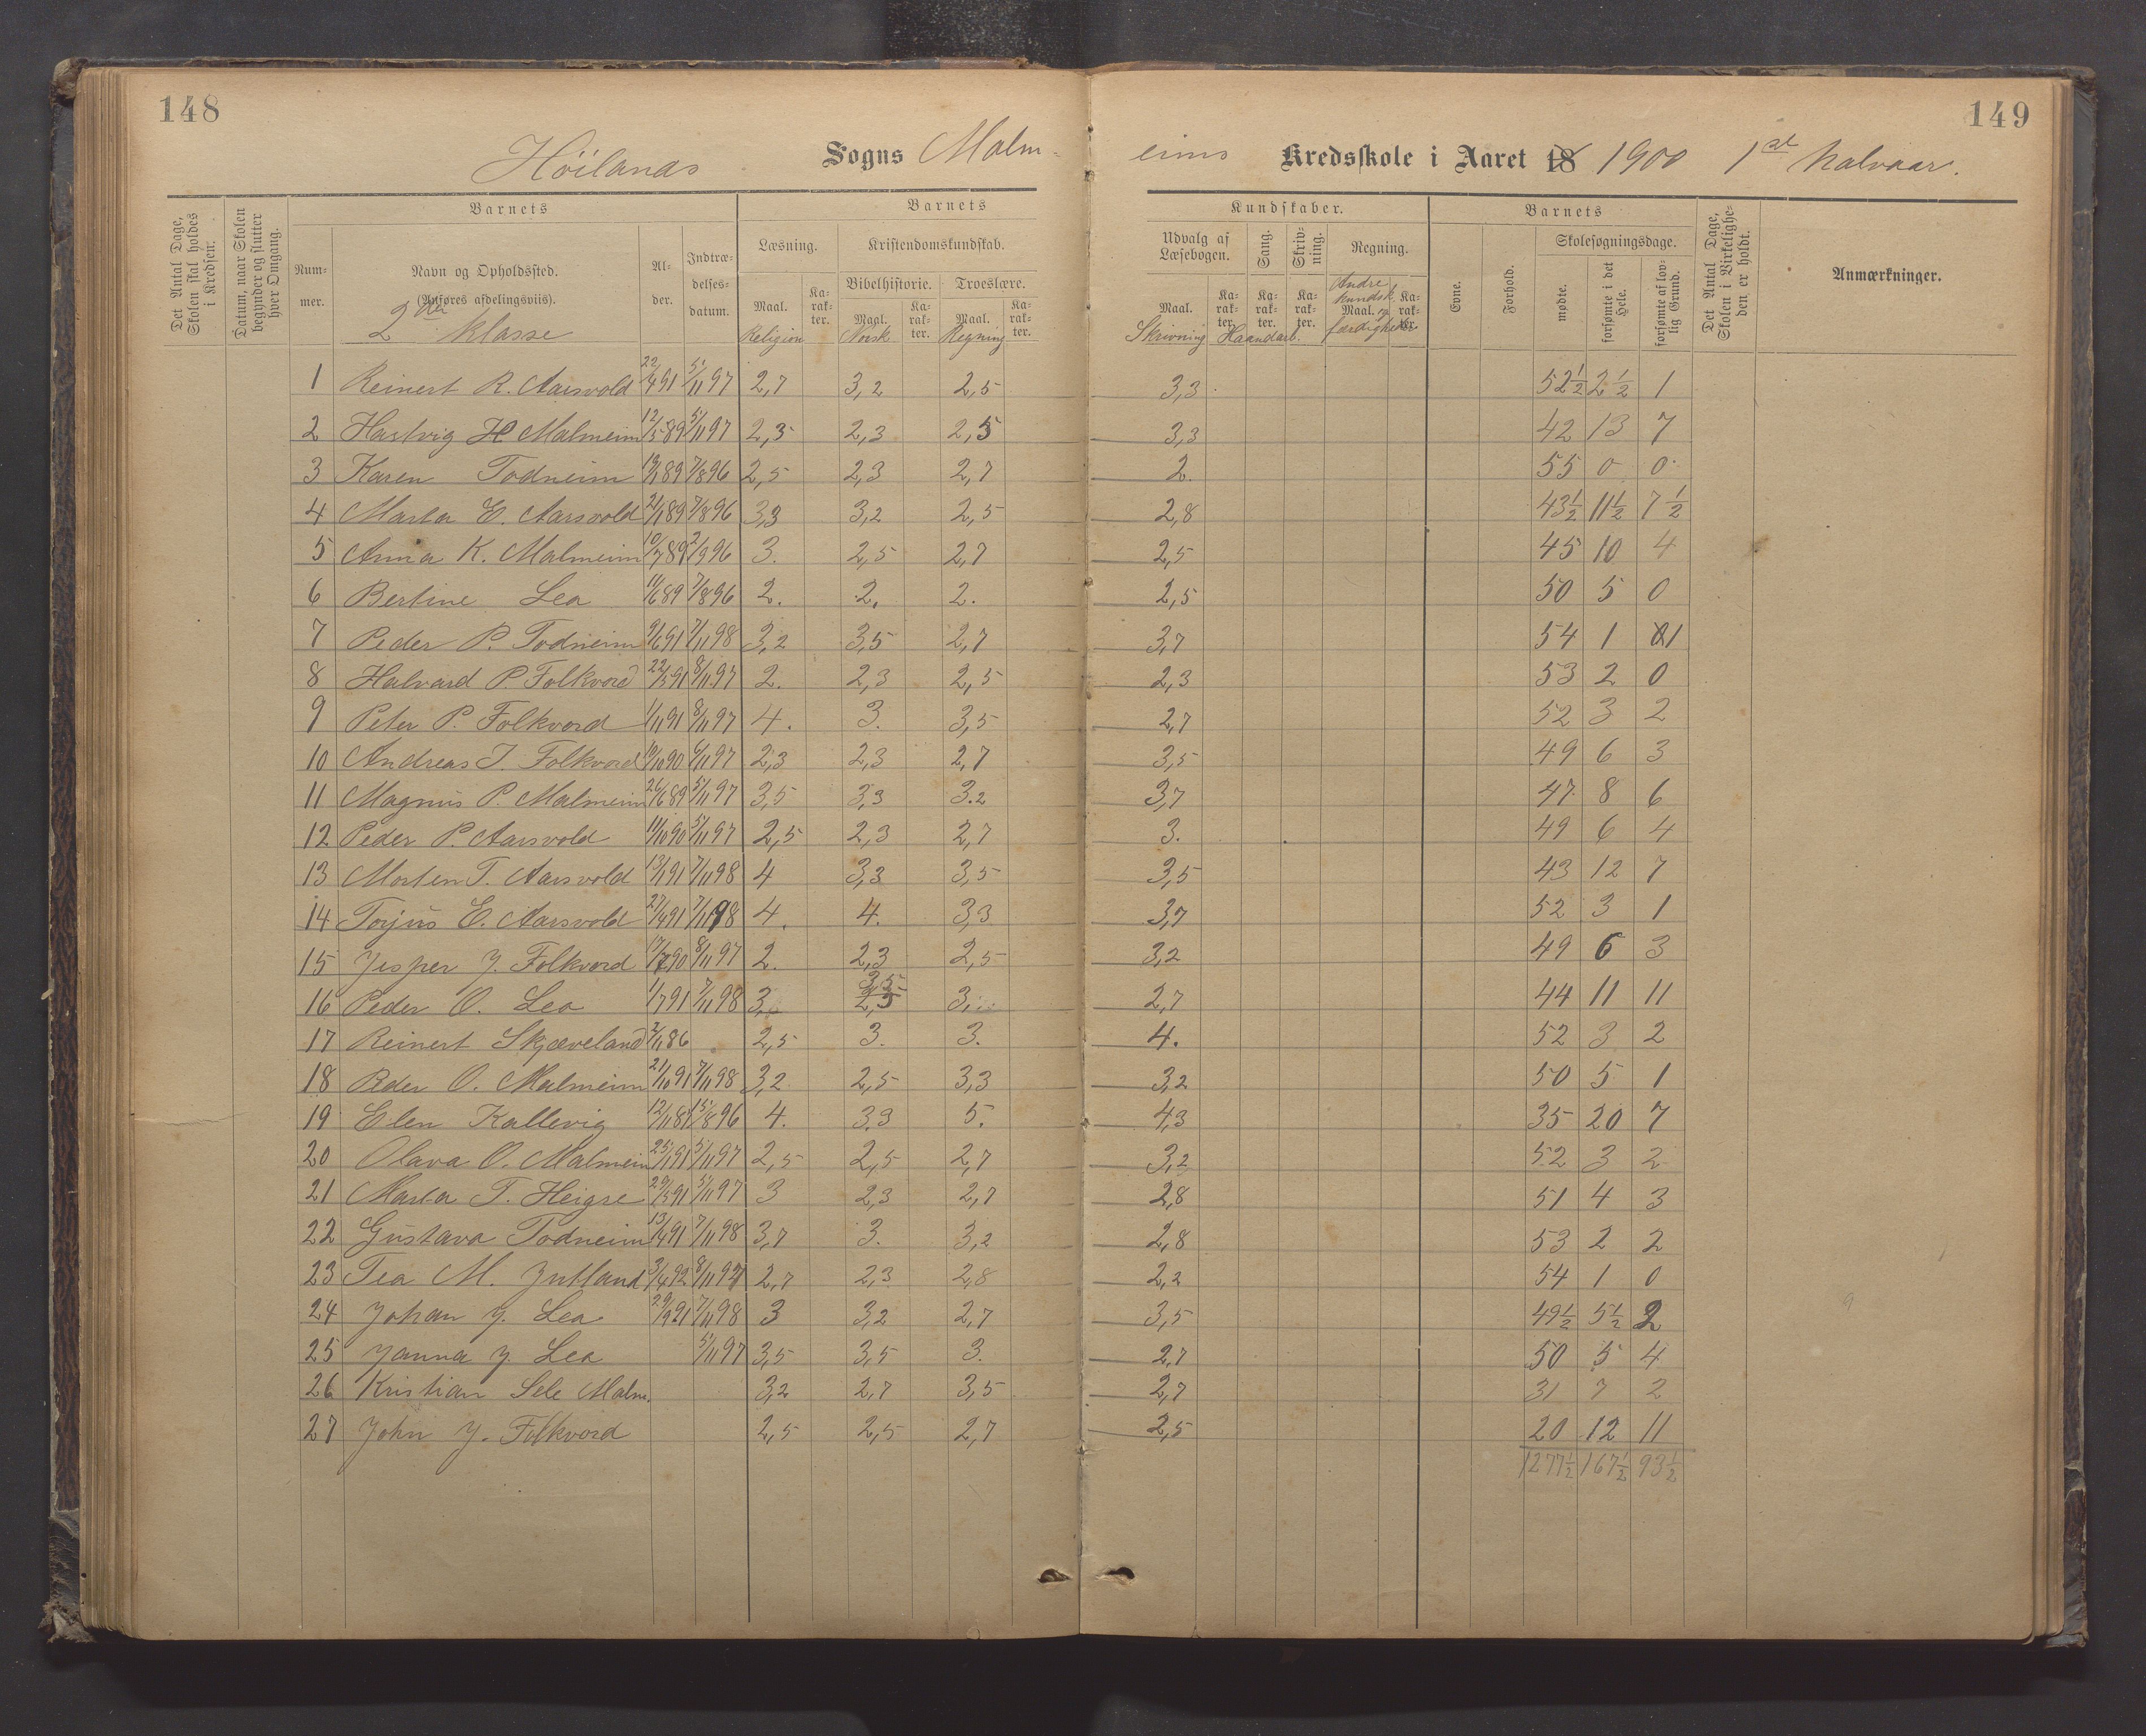 148
149
Höilands Sogns Malm-
eims Kredsskole i Aaret 18 1900 1st halvaar.
Det Antal Dage, Skolen skal holdes i Kredsen.
Datum, naar Skolen begynder og slutter hver Omgang.
Barnets
Num-
mer.
Navn og Opholdssted.
(Anføres afdelingsviis).
2den klasse
Al-
der.
Indtræ-
delses-
datum.
Barnets
Læsning.
Kristendomskundskab.
Bibelhistorie. Troeslære.
Maal. Ka-
rak-
ter. Maal. Ka-
rak-
ter. Maal. Ka-
rak-
ter.
Religion Norsk Regning
Kundskaber.
Udvalg af
Læsebogen.
Sang.
Skriv-
ning.
Regning.
Maal. Ka-
rak-
ter. Ka-
rak-
ter. Ka-
rak-
ter. Maal. Ka-
rak-
ter.
Skrivning Haandarb. Andre kundsk. og færdigheder
Barnets
Evne.
Forhold.
Skolesøgningsdage.
mødte.
forsømte i det Hele.
forsømte af lov-
lig Grund.
Det Antal Dage, Skolen i Virkelighe-
den er holdt.
Anmærkninger.
1 Reinert R. Aarsvold 22/4 91 5/11 97 2,7 3,2 2,5 3,3 52½ 2½ 1
2 Hartvig H Malmeim 12/5 89 5/11 97 2,3 2,3 2,5 3,3 42 13 7
3 Karen Todneim 19/1 89 7/8 96 2,5 2,3 2,7 2. 55 0 0
4 Marta E. Aarsvold 21/1 89 7/8 96 3,3 3,2 2,5 2,8 43½ 11½ 7½
5 Anna K. Malmeim 10/7 89 2/9 96 3. 2,5 2,7 2,5 45 10 4
6 Bertine Lea 11/6 89 7/8 96 2. 2. 2. 2,5 50 5 0
7 Peder P. Todneim 9/6 91 7/11 98 3,2 3,5 2,7 3,7 54 1 1
8 Halvard P. Folkvord 22/3 91 8/11 97 2. 2,3 2,5 2,3 53 2 0
9 Peter P. Folkvord 1/11 91 8/11 97 4. 3. 3,5 2,7 52 3 2
10 Andreas J. Folkvord 10/10 90 6/11 97 2,3 2,3 2,7 3,5 49 6 3
11 Magnus P. Malmeim 26/6 89 5/11 97 3,5 3,3 3.2 3,7 47 8 6
12 Peder P. Aarsvold 11/10 90 5/11 97 2,5 2,3 2,7 3. 49 6 4
13 Morten T. Aarsvold 13/1 91 7/11 98 4 3,3 3,5 3,5 43 12 7
14 Torjus E. Aarsvold 27/4 91 7/11 98 4. 4. 3,3 3,7 52 3 1
15 Jesper J. Folkvord 17/7 90 8/11 97 2. 2,3 2,5 3,2 49 6 3
16 Peder O. Lea 1/7 91 7/11 98 3. 3,5 2,5 3. 2,7 44 11 11
17 Reinert Skjæveland 2/11 86 2,5 3. 3. 4. 52 3 2
18 Peder O. Malmeim 21/10 91 7/11 98 3,2 2,5 3,3 3,2 50 5 1
19 Elen Kallevig 12/11 87 15/8 96 4. 3.3 5. 4,3 35 20 7
20 Olava O. Malmeim 25/1 91 5/11 97 2,5 2,5 2,7 3,2 52 3 2
21 Marta T. Heigre 29/3 91 5/11 97 3 2,3 2,7 2,8 51 4 3
22 Gustava Todneim 13/4 91 7/11 98 3,7 3. 3,2 2,8 53 2 2
23 Tea M. Jutland 3/4 92 8/11 97 2,7 2,3 2,8 2,2 54 1 0
24 Johan J. Lea 29/9 91 7/11 98 3 3,2 2,7 3,5 49½ 5½ 2
25 Janna J. Lea 5/11 97 3,5 3,5 3. 2,7 50 5 4
26 Kristian Sele Malm. 3,2 2,7 3,5 2,7 31 7 2
27 John J. Folkvord 2,5 2,5 2,7 2,5 20 12 11
1277½ 167½ 93½